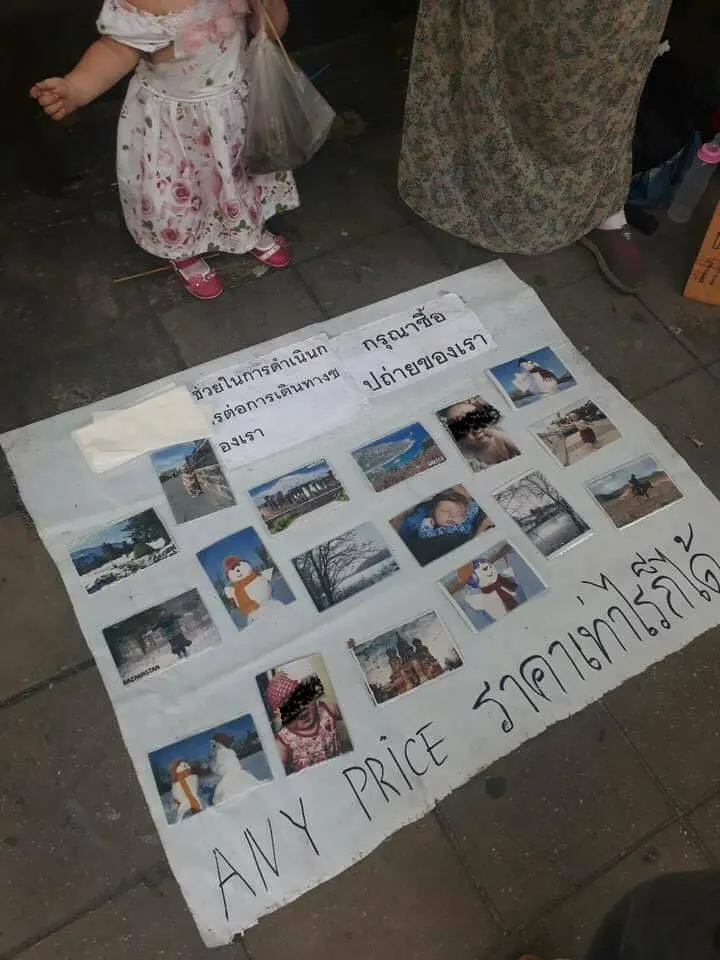 ช่วยในการดำเนินก
ารต่อการเดินทางข
องเรา
กรุณาซื้อ
ปถ่ายของเรา
GREECE
KAZAKHSTAN
ANY PRICE ราคาเท่าไรก็ได้